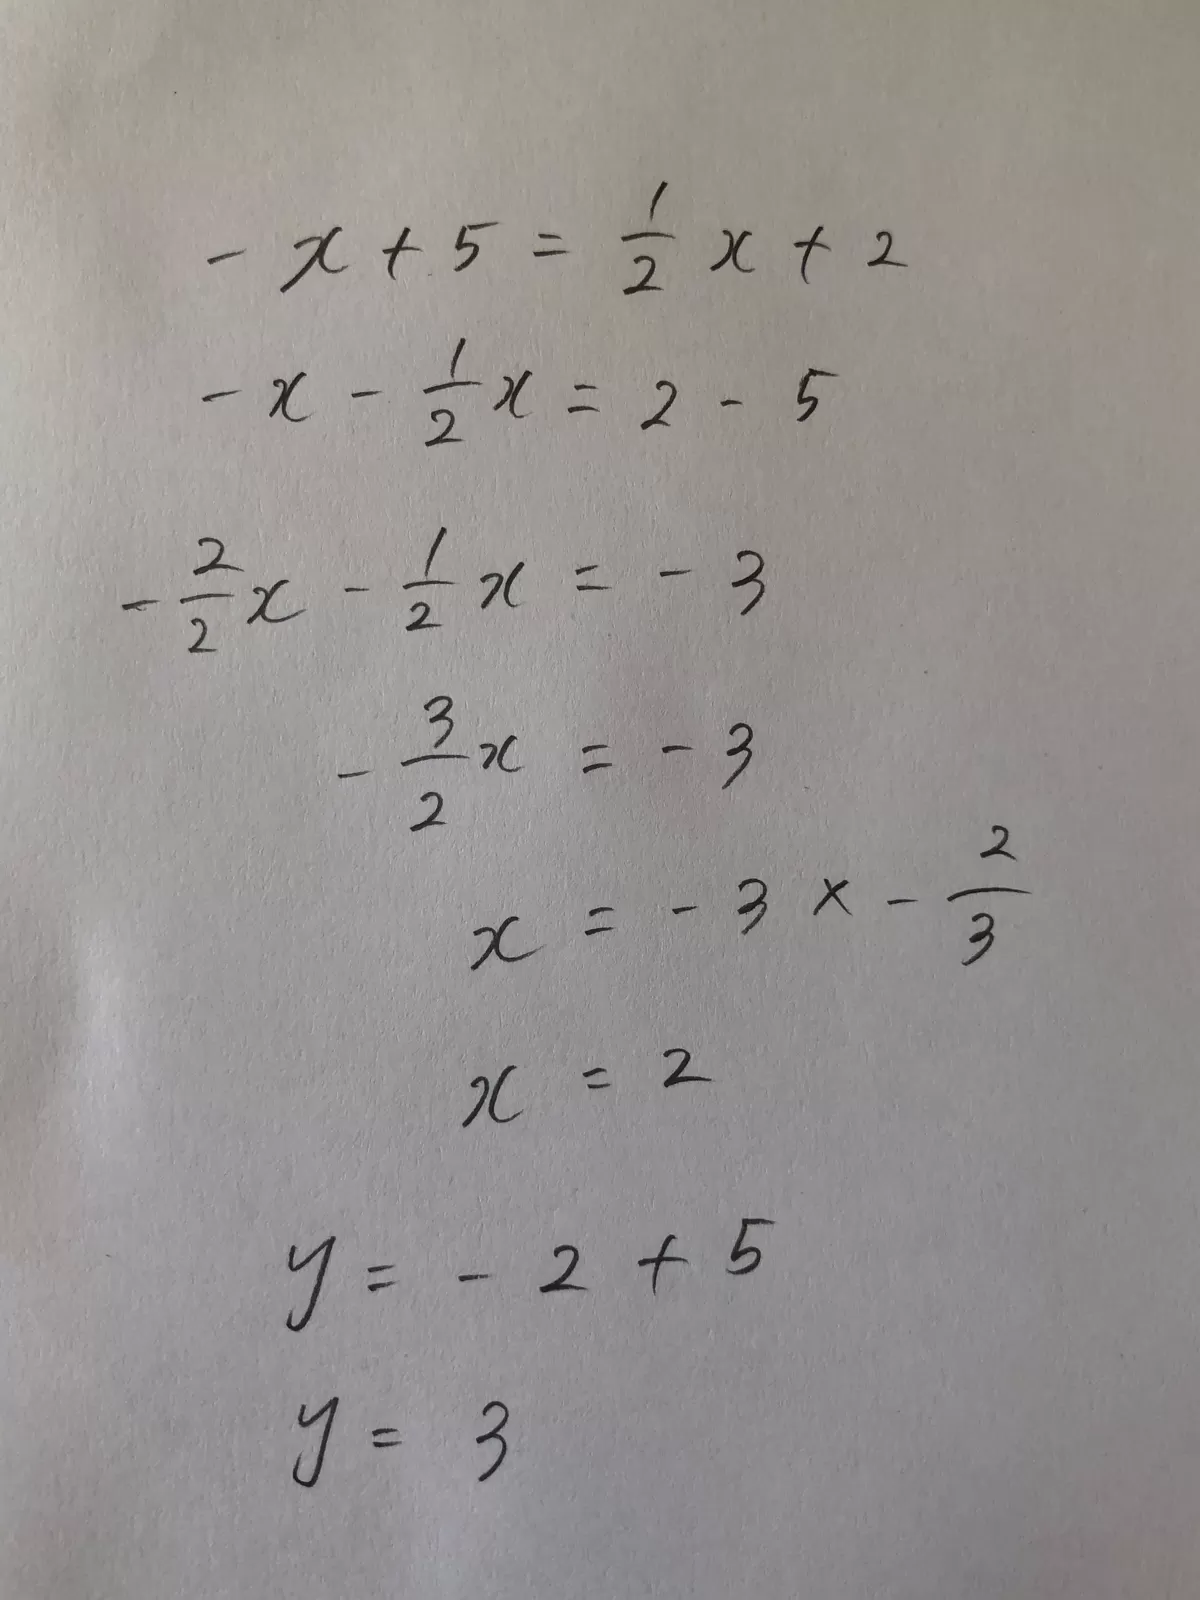 - x + 5 = 1/2 x + 2
- x - 1/2 x = 2 - 5
- 2/2 x - 1/2 x = - 3
- 3/2 x = - 3
x = - 3 × - 2/3
x = 2
y = - 2 + 5
y = 3